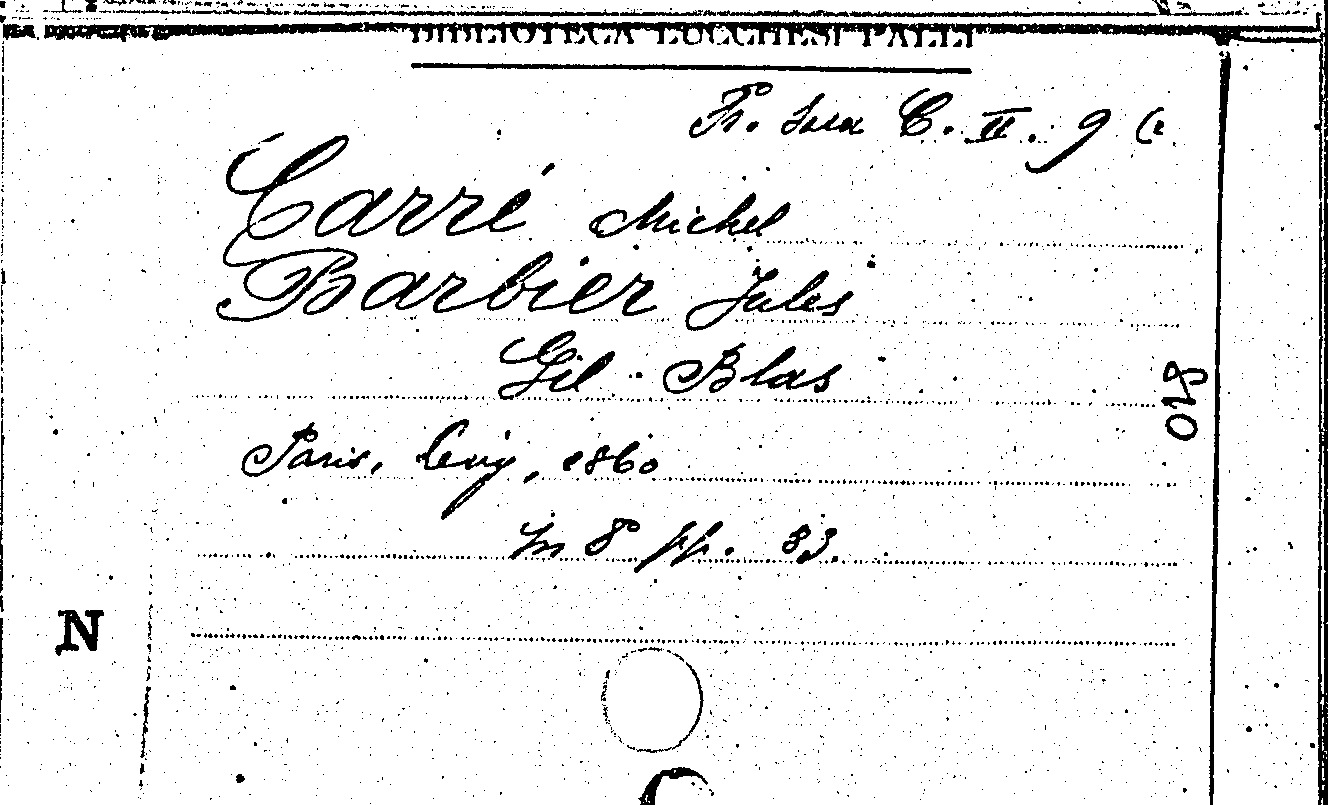 BIBLIOTECA LUCCHESI PALLI
Fr. C. II. 9 (
Carré Michel
Barbier Jules
Gil-Blas
Paris, Levy, 1860
In 8° pp. 83.
N